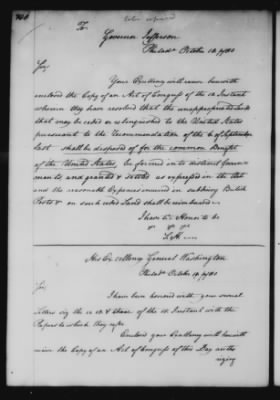 To
Governor Jefferson
Philada. October 10. 1780
Sir,
Your Excellency will receive herewith
enclosed the Copy of an Act of Congress of the 10. Instant
wherein they have resolved that the unappropriated Lands
that may be ceded or relinquished to the United States
pursuant to the Recommendation of the 6 of September
last shall be disposed of for the common Benefit
of the United States, be formed into distinct Govern-
ments and granted & settled as expressed in the Act
and the reasonable Expences incurred in subduing British
Posts & on such ceded Lands shall be reimbursed—
I have the Honor to be
&c &c &c
S. H.
His Excellency General Washington
Philada. October 14. 1780
Sir
I have been honored with your several
Letters the Instant with the
Papers to which they refer
Enclosed your Excellency will herewith
receive the Copy of an Act of Congress of this Day autho
rizing